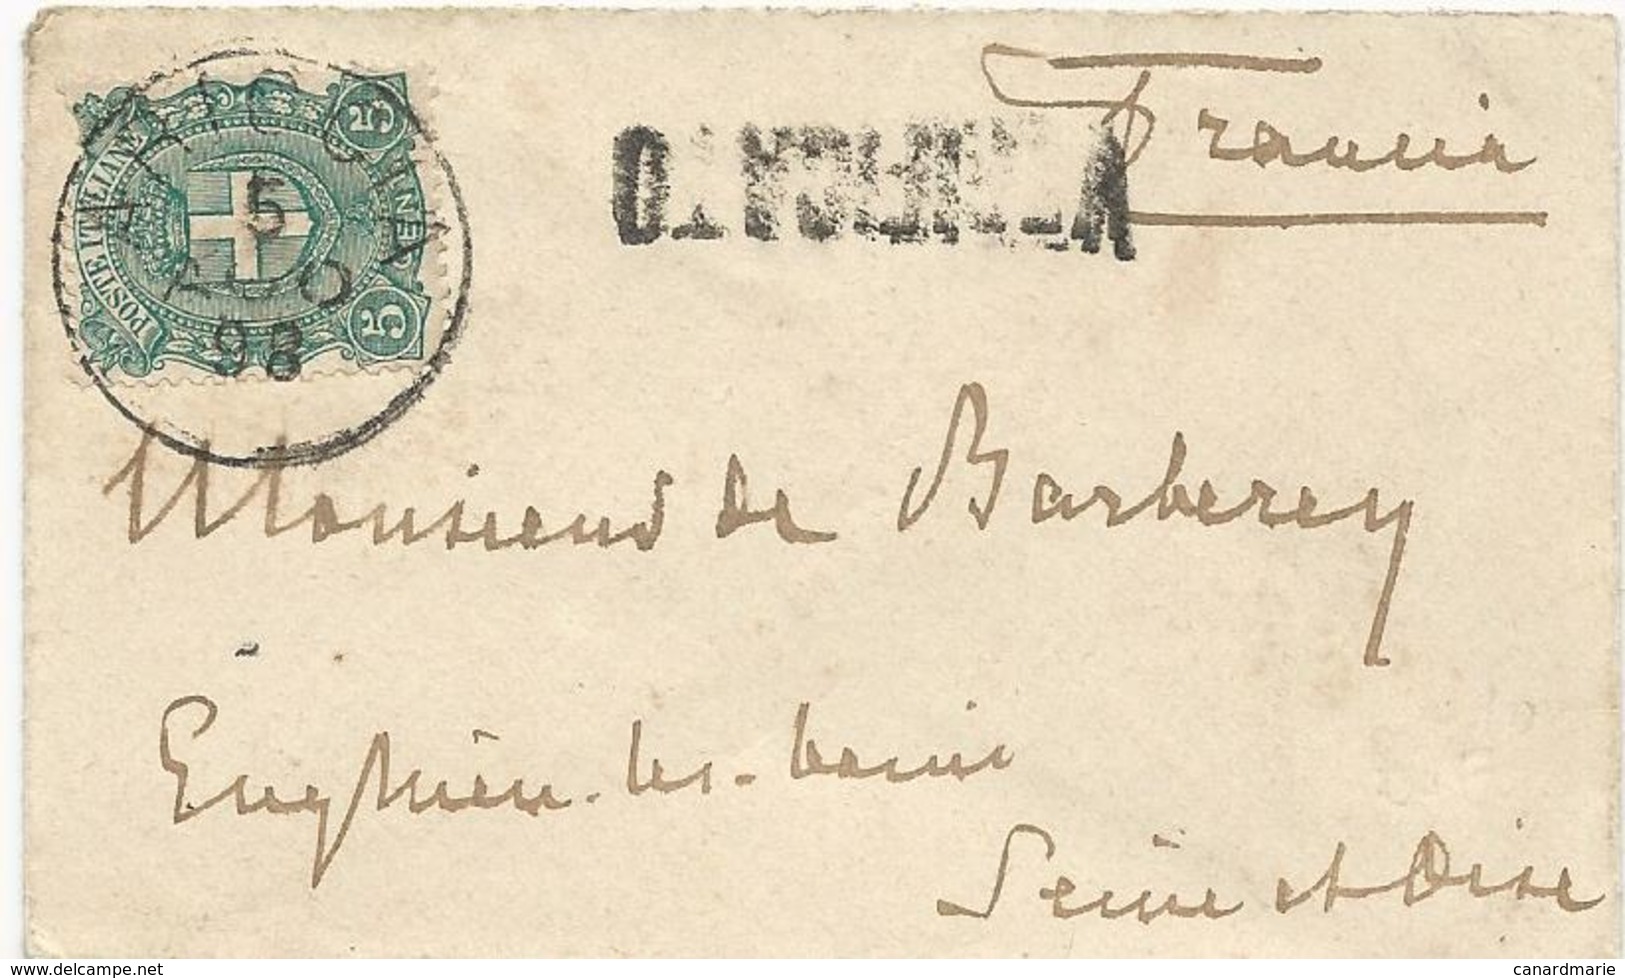 Francia
POSTE ITALIANE
5
5
5
98
Monsieur de Barberey
Enghien-les-bains
Seine et Oise
www.delcampe.net
canardmarie